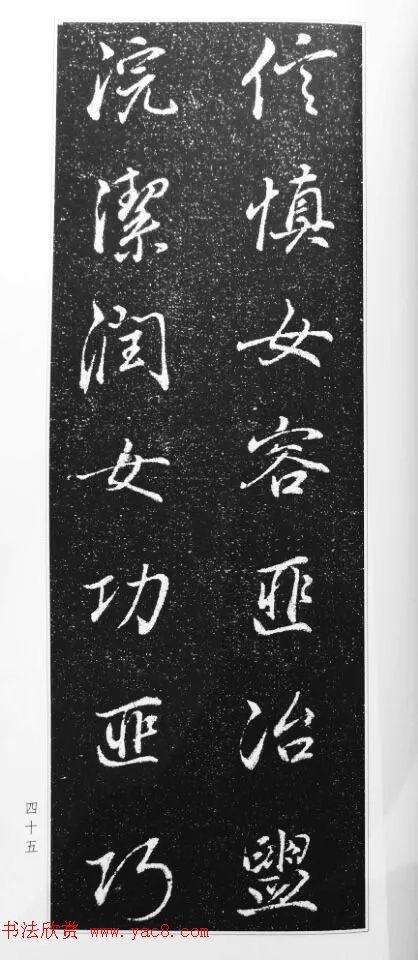 信慎女容匪冶盥
浣潔潤女功匪巧
四十五
书法欣赏 www.yac8.com